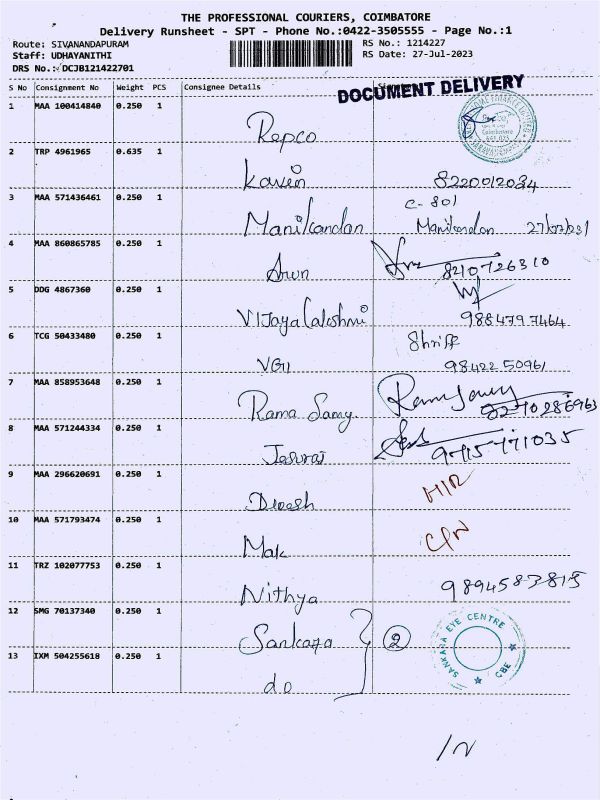 THE PROFESSIONAL COURIERS, COIMBATORE
Delivery Runsheet - SPT - Phone No.:0422-3505555 - Page No.:1
Route: SIVANANDAPURAM RS No.: 1214227
Staff: UDHAYANITHI RS Date: 27-Jul-2023
DRS No.: DCJB121422701
S No Consignment No Weight PCS Consignee Details
DOCUMENT DELIVERY
1 MAA 100414840 0.250 1
Repco
2 TRP 4961965 0.635 1
Kavin 8220012034
3 MAA 571436461 0.250 1
C-801
Manikandan Manikandan
4 MAA 860865785 0.250 1
Arun 8210726310
5 DDG 4867360 0.250 1
Vijaya Lakshmi 9884797464
6 TCG 50433480 0.250 1
Shriff
VGN 98422 50961
7 MAA 858953648 0.250 1
Rama Samy Ramasamy
8 MAA 571244334 0.250 1
9715771035
9 MAA 296620691 0.250 1
10 MAA 571793474 0.250 1
Mak
11 TRZ 102077753 0.250 1
Nithya 9894583815
12 SMG 70137340 0.250 1
Sankara 2
SANKARA EYE CENTRE
CBE
13 IXM 504255618 0.250 1
do